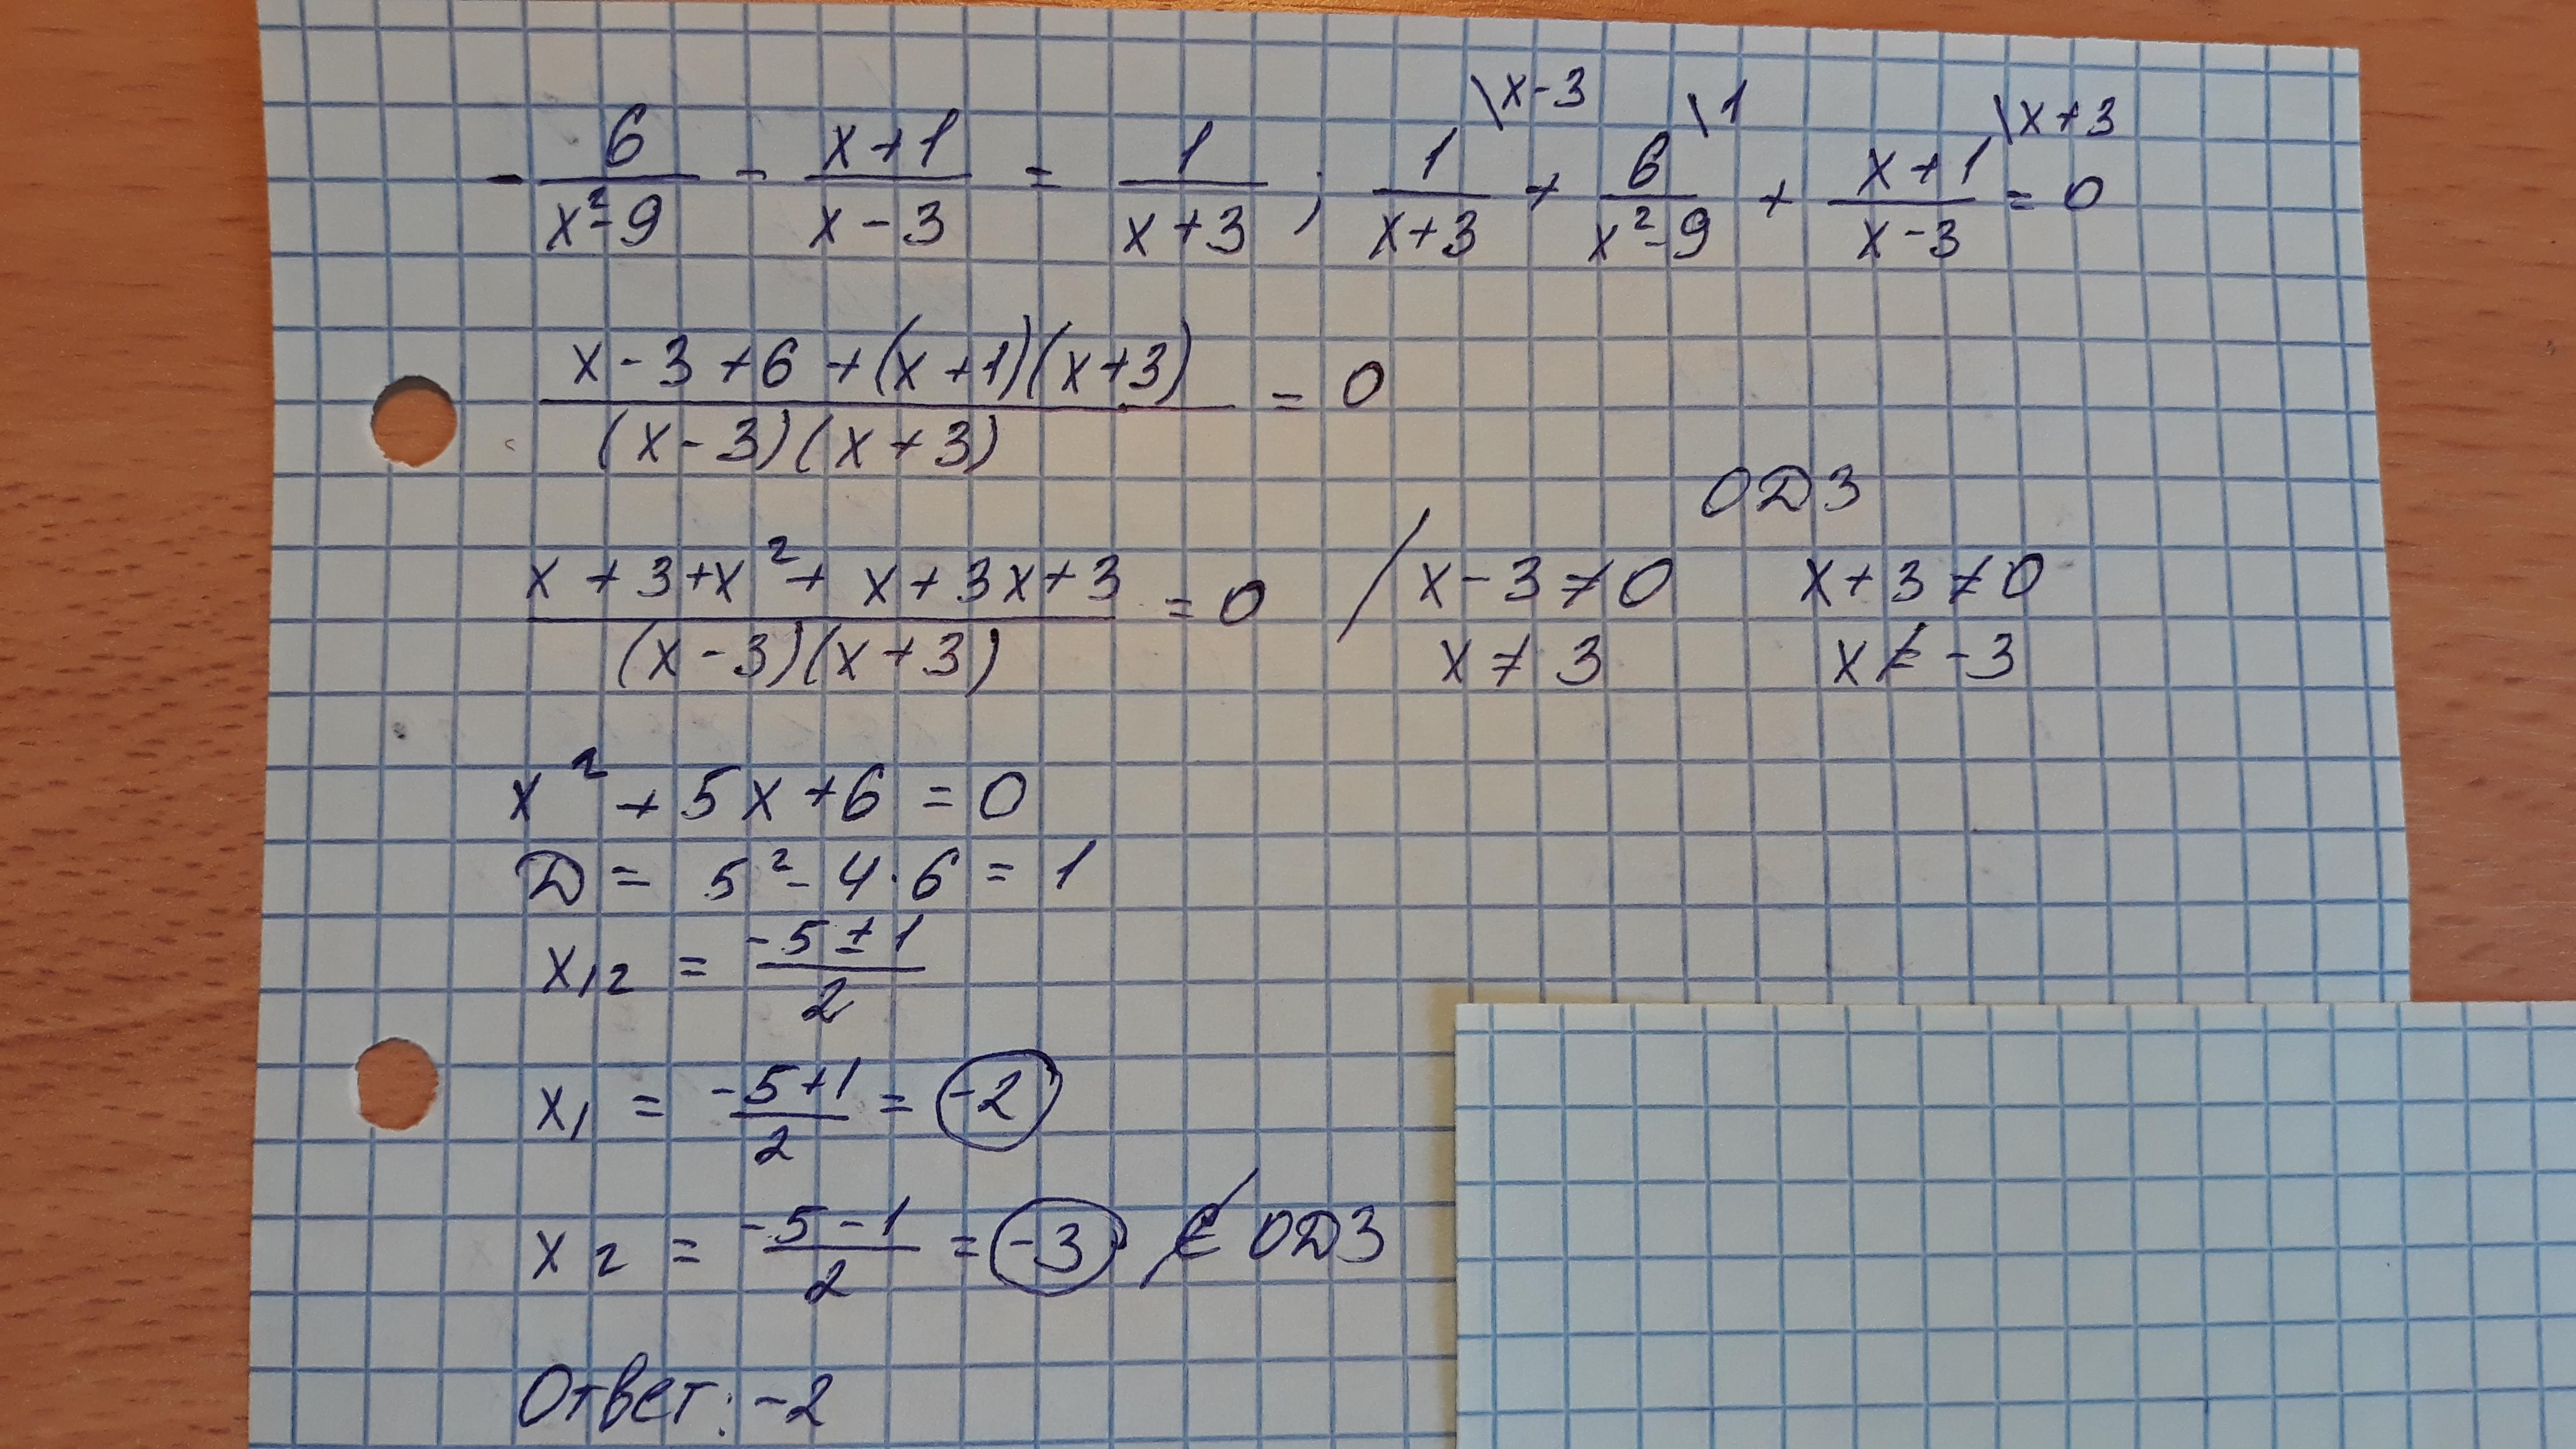 - 6/(x²-9) - (x+1)/(x-3) = 1/(x+3) ; 1/(x+3) \x-3 + 6/(x²-9) \1 + (x+1)/(x-3) \x+3 = 0
(x-3+6+(x+1)(x+3))/((x-3)(x+3)) = 0
ОДЗ
(x+3+x²+x+3x+3)/((x-3)(x+3)) = 0 / x-3≠0 x+3≠0
x≠3 x≠-3
x²+5x+6=0
Д = 5²-4·6 = 1
x₁₂ = (-5±1)/2
x₁ = (-5+1)/2 = -2
x₂ = (-5-1)/2 = -3 ∉ ОДЗ
Ответ: -2